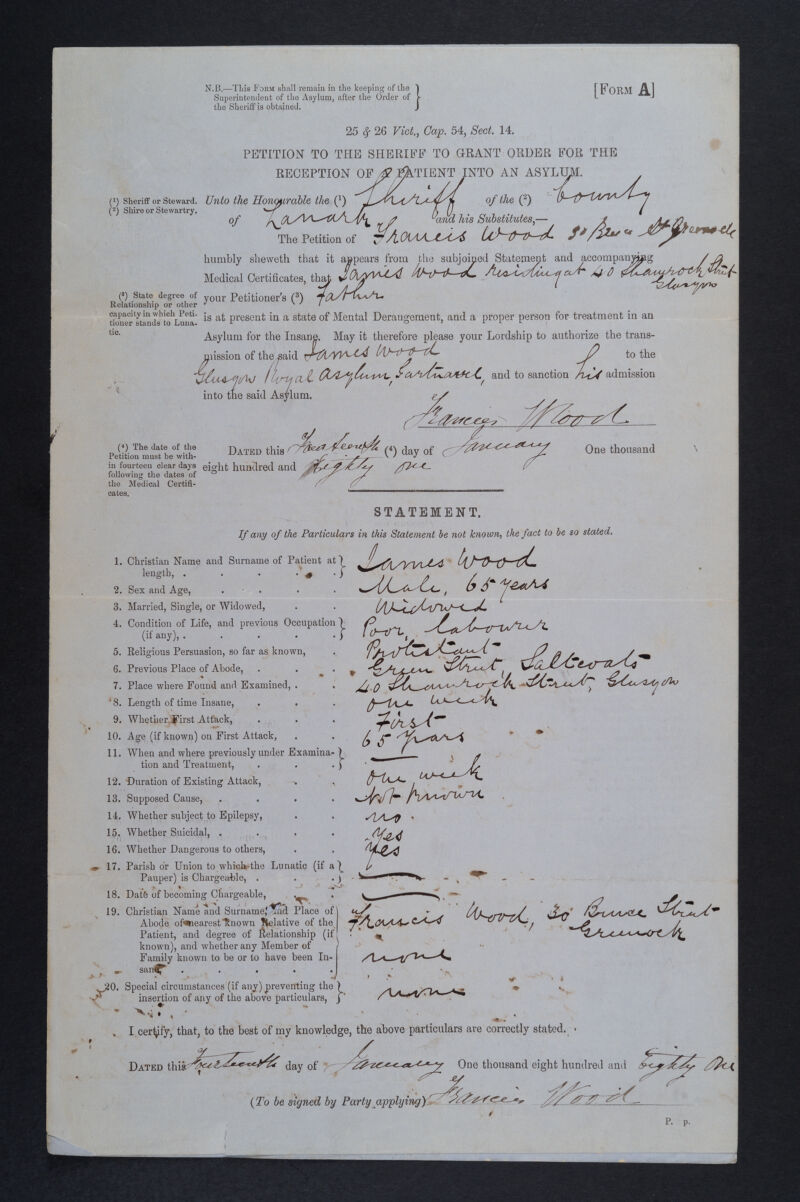 N.B.—This Form shall remain in the keeping of the
Superintendent of the Asylum, after the Order of
the Sheriff is obtained.
[Form A]
25 & 26 Vict., Cap. 54, Sect. 14.
PETITION TO THE SHERIFF TO GRANT ORDER FOR THE
RECEPTION OF A PATIENT INTO AN ASYLUM.
(1) Sheriff or Steward.
(2) Shire or Stewartry.
Unto the Honourable the (1) Sheriff of the (2) County
of Lanark and his Substitutes,—
The Petition of Francis Wood 30 Bruce St Greenock
humbly sheweth that it appears from the subjoined Statement and accompanying
Medical Certificates, that James Wood residing at 40 Shamrock Street
Glasgow
(3) State degree of
Relationship or other
capacity in which Peti-
tioner stands to Luna-
tic.
your Petitioner's (3) Father
is at present in a state of Mental Derangement, and a proper person for treatment in an
Asylum for the Insane. May it therefore please your Lordship to authorize the trans-
mission of the said James Wood to the
Glasgow Royal Asylum, Gartnavel, and to sanction his admission
into the said Asylum.
Francis Wood
(4) The date of the
Petition must be with-
in fourteen clear days
following the dates of
the Medical Certifi-
cates.
Dated this Fourteenth (4) day of January One thousand
eight hundred and Eighty one
STATEMENT.
If any of the Particulars in this Statement be not known, the fact to be so stated.
1. Christian Name and Surname of Patient at
length, . . . . . James Wood
2. Sex and Age, . . . . Male, 65 years
3. Married, Single, or Widowed, . . Widowed
4. Condition of Life, and previous Occupation
(if any), . . . . . Poor, labourer
5. Religious Persuasion, so far as known, . Protestant
6. Previous Place of Abode, . . . Green Street, Saltcoats
7. Place where Found and Examined, . . 40 Shamrock Street, Glasgow
8. Length of time Insane, . . . one week
9. Whether First Attack, . . . First
10. Age (if known) on First Attack, . . 65 years
11. When and where previously under Examina-
tion and Treatment, . . . —
12. Duration of Existing Attack, . . one week
13. Supposed Cause, . . . . Not known
14. Whether subject to Epilepsy, . . no
15. Whether Suicidal, . . . . Yes
16. Whether Dangerous to others, . . Yes
17. Parish or Union to which the Lunatic (if a
Pauper) is Chargeable, . . . —
18. Date of becoming Chargeable, . . —
19. Christian Name and Surname, and Place of
Abode of nearest known Relative of the
Patient, and degree of Relationship (if
known), and whether any Member of
Family known to be or to have been In-
sane, . . . . .
Francis Wood, 30 Bruce Street
Greenock
none
20. Special circumstances (if any) preventing the
insertion of any of the above particulars, none
I certify, that, to the best of my knowledge, the above particulars are correctly stated.
Dated this Fourteenth day of January One thousand eight hundred and Eighty One
(To be signed by Party applying) Francis Wood
P. p.